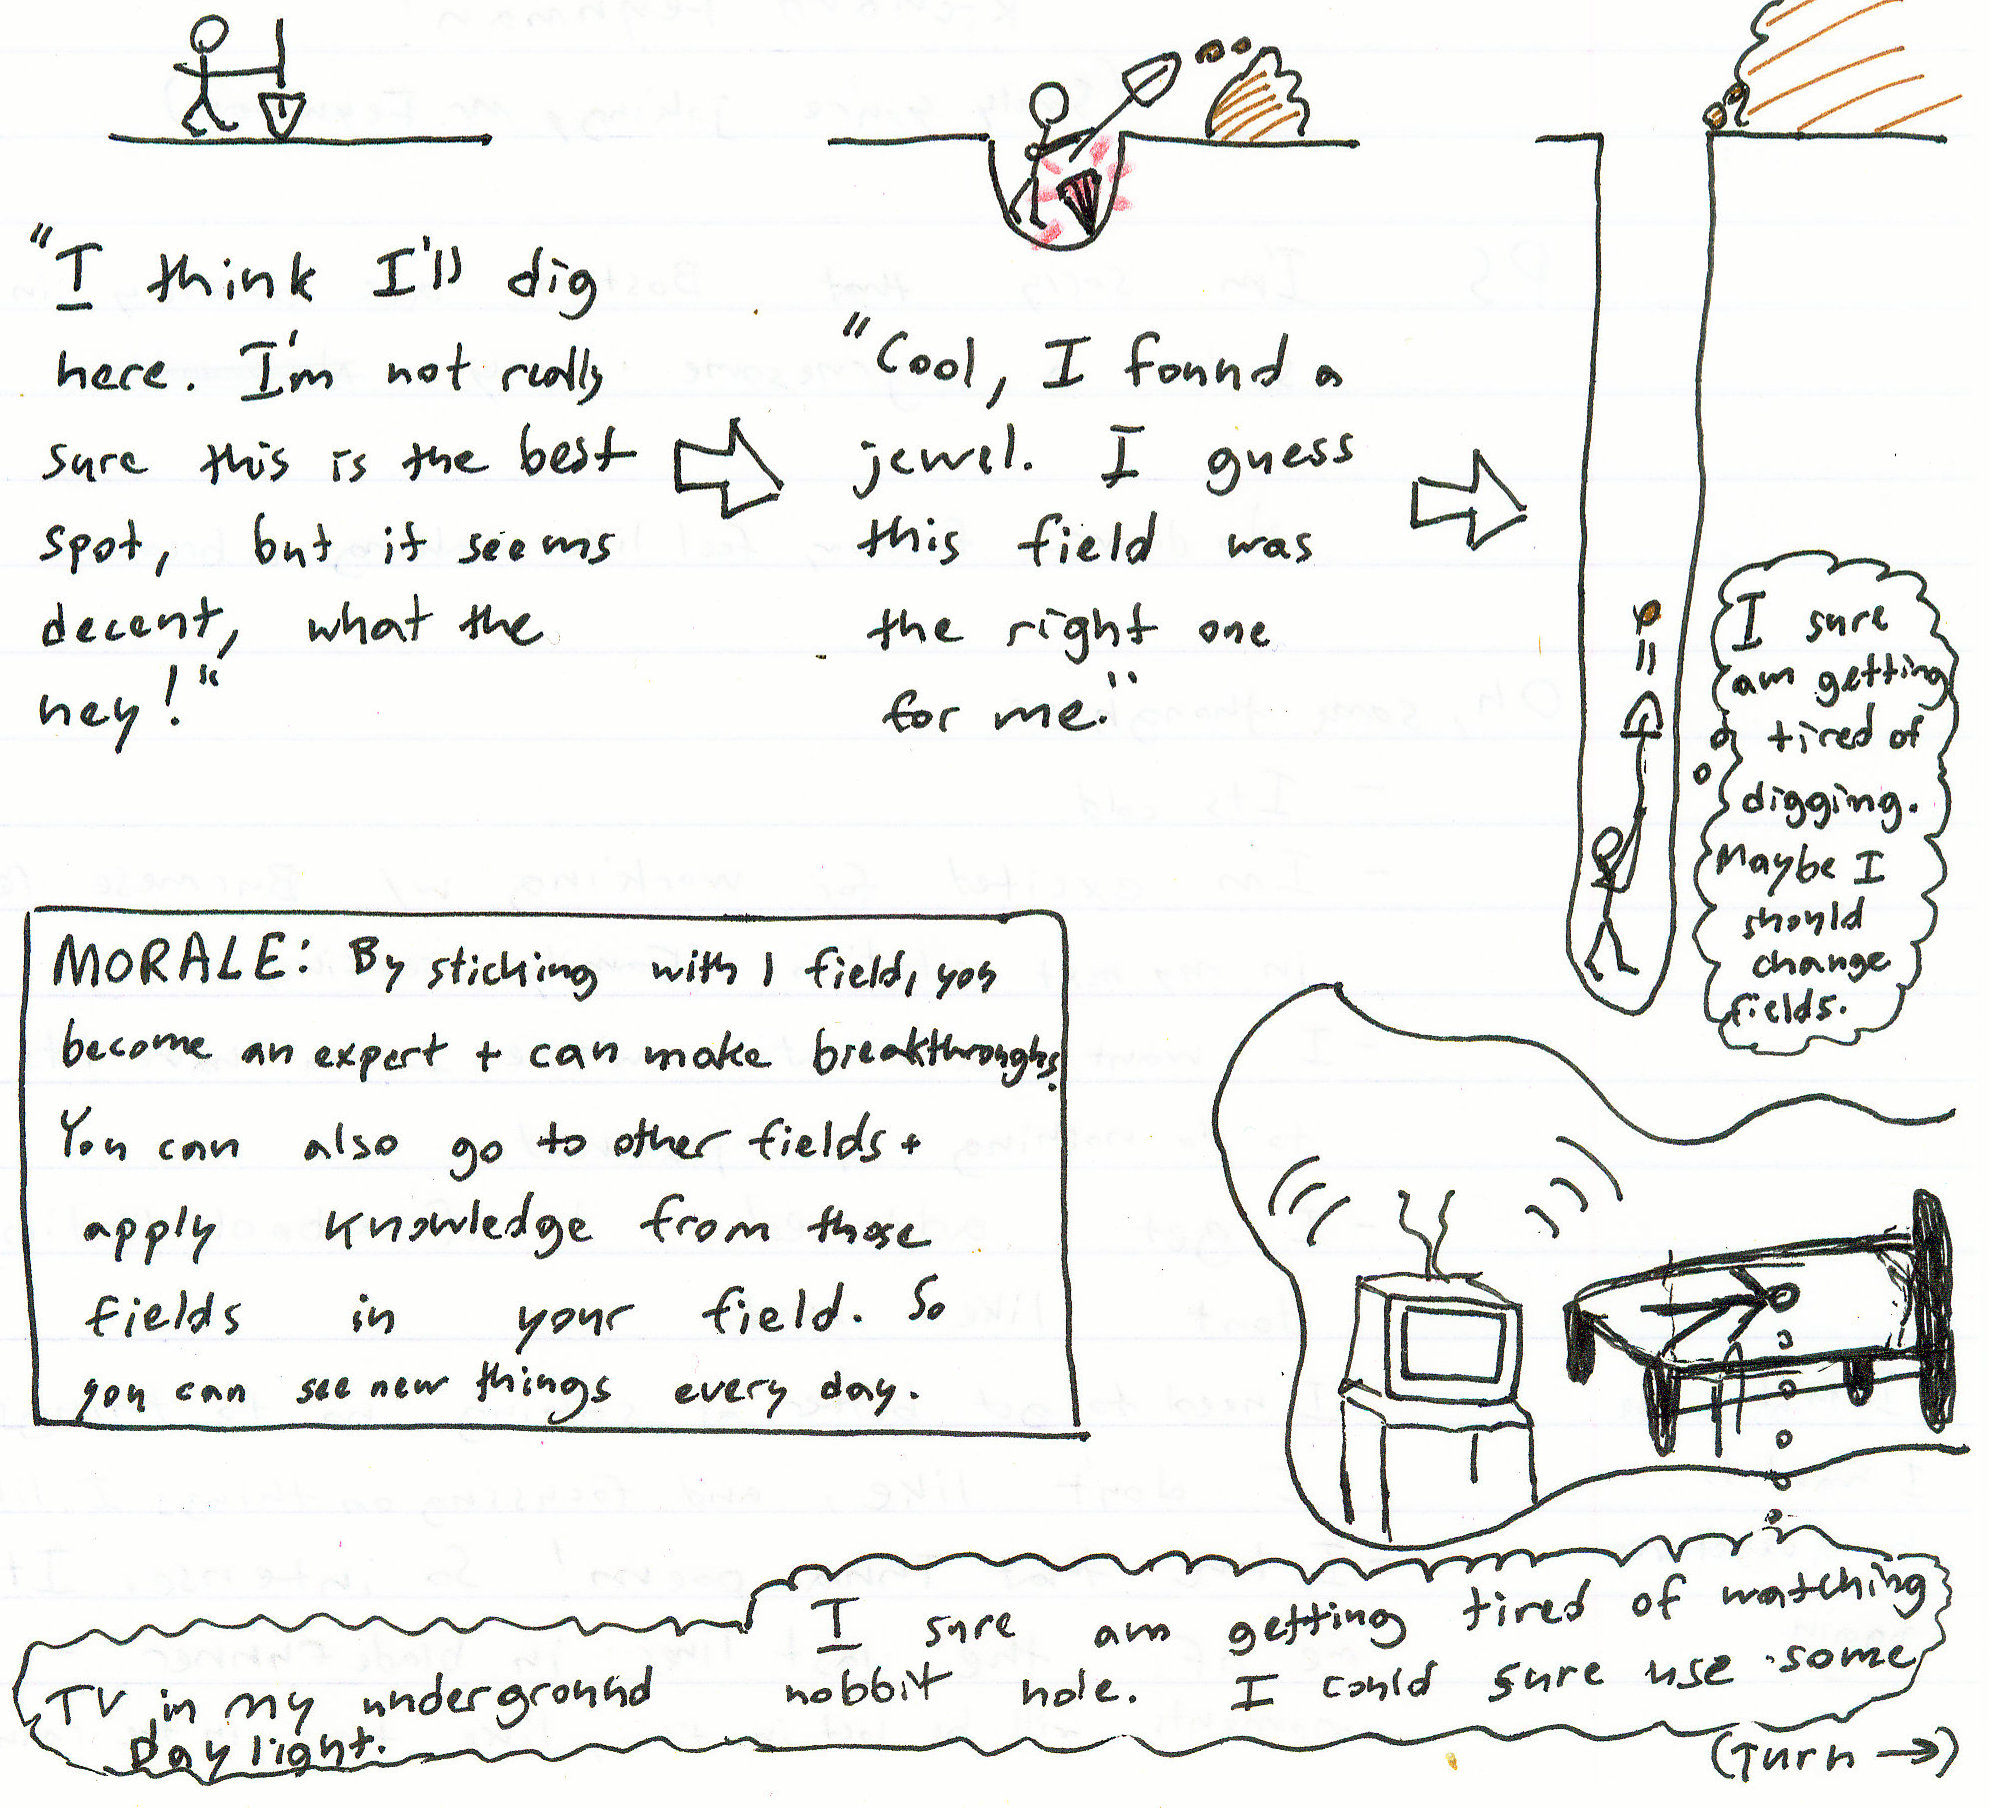 "I think I'll dig
here. I'm not really
sure this is the best
spot, but it seems
decent, what the
hey!"
"Cool, I found a
jewel. I guess
this field was
the right one
for me."
I sure
am getting
tired of
digging.
Maybe I
should
change
fields.
MORALE: By sticking with 1 field, you
become an expert + can make breakthroughs.
You can also go to other fields +
apply knowledge from those
fields in your field. So
you can see new things every day.
I sure am getting tired of watching
TV in my underground hobbit hole. I could sure use some
daylight.
(Turn →)